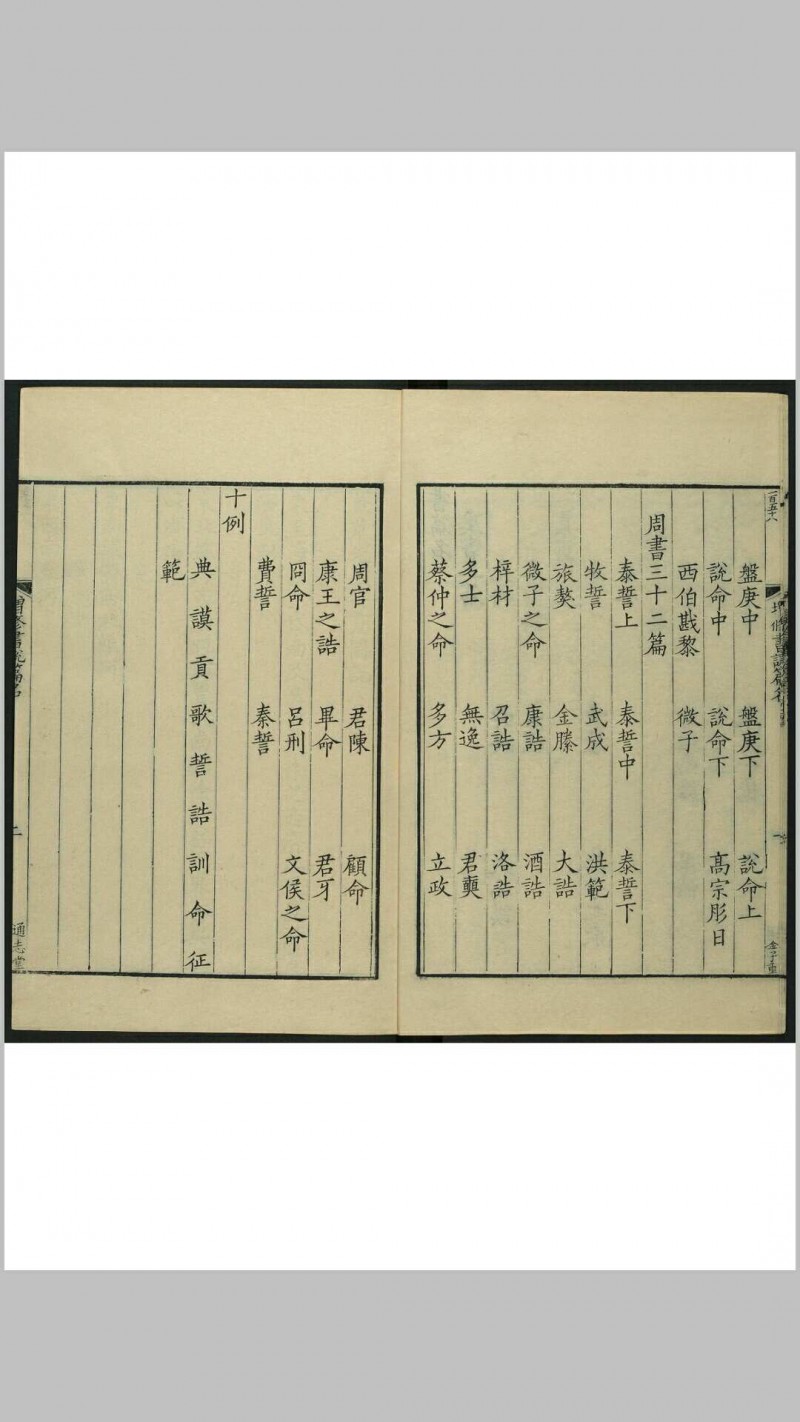 一百五十八
盤庚中 盤庚下 說命上
說命中 說命下 高宗肜日
西伯戡黎 微子
周書三十二篇
泰誓上 泰誓中 泰誓下
牧誓 武成 洪範
旅獒 金縢 大誥
微子之命 康誥 酒誥
梓材 召誥 洛誥
多士 無逸 君奭
蔡仲之命 多方 立政
周官 君陳 顧命
康王之誥 畢命 君牙
冏命 呂刑 文侯之命
費誓 秦誓
十例
典謨貢歌誓誥訓命征
範
增修書說篇名
二
通志堂